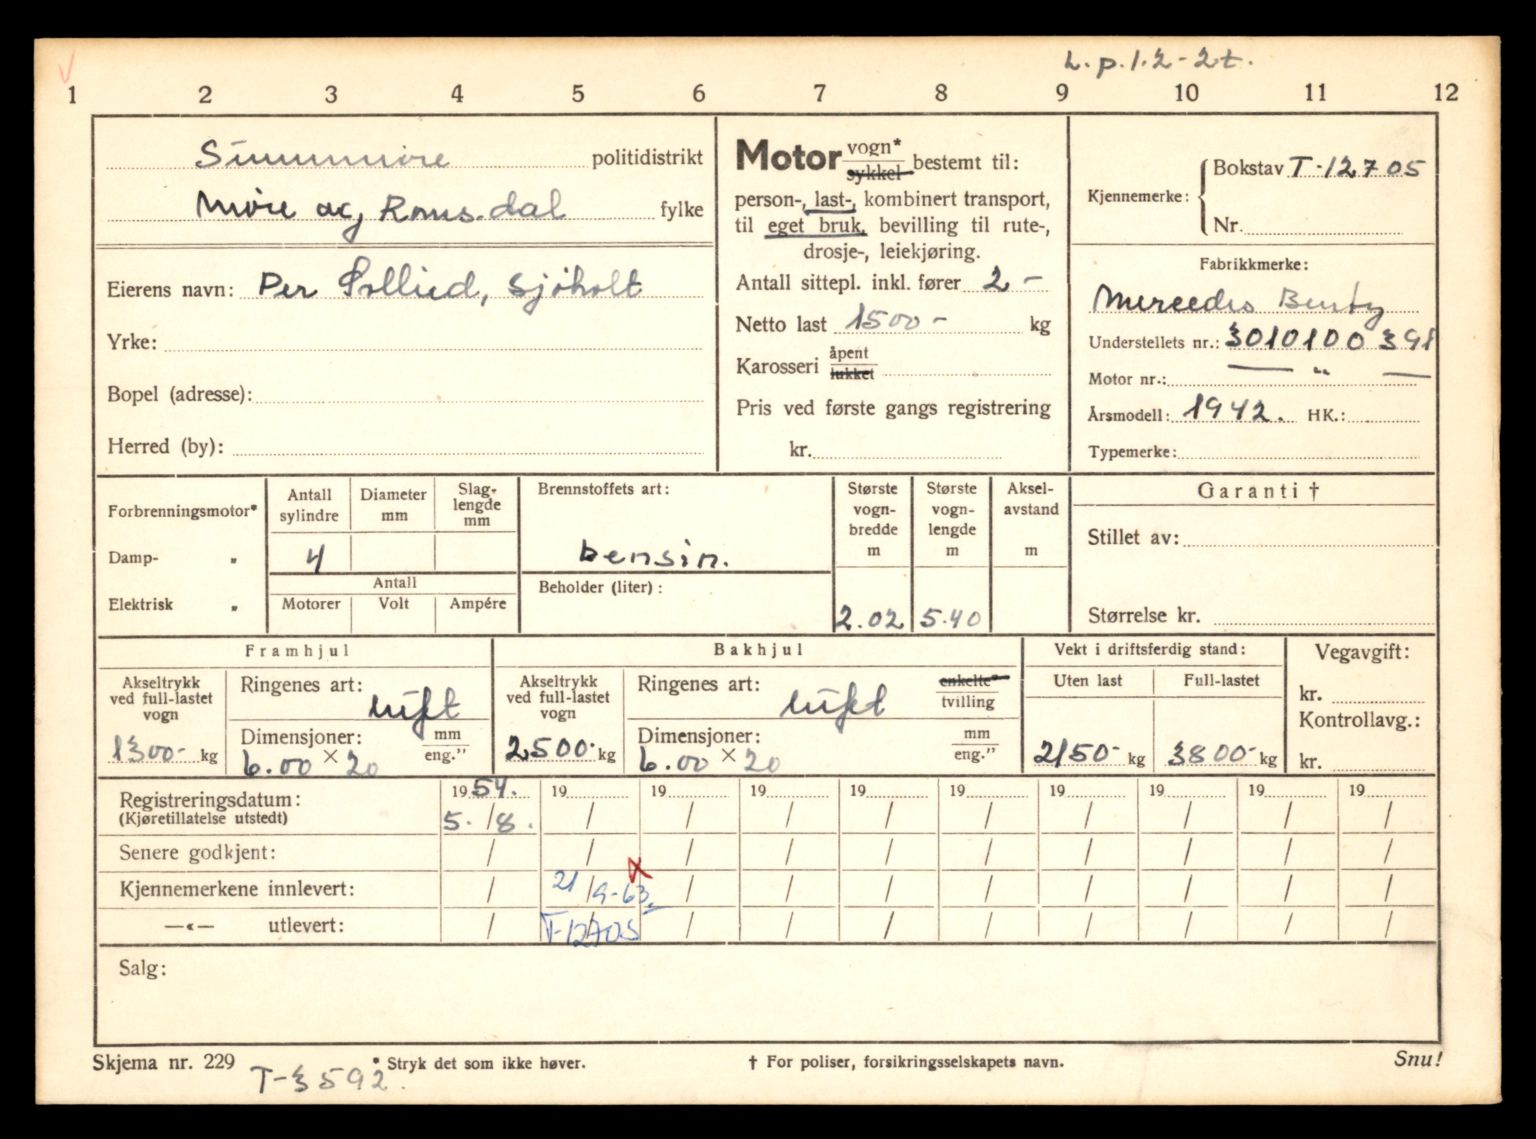 L.p.1.2-2t.
1 2 3 4 5 6 7 8 9 10 11 12
Sunnmøre politidistrikt
Møre og Romsdal fylke
Eierens navn: Per Sollied, Sjøholt
Yrke:
Bopel (adresse):
Herred (by):
Motor vogn* sykkel bestemt til:
person-, last-, kombinert transport,
til eget bruk, bevilling til rute-,
drosje-, leiekjøring.
Antall sittepl. inkl. fører 2 -
Netto last 1500 - kg
Karosseri åpent lukket
Pris ved første gangs registrering
kr.
Kjennemerke: Bokstav T-12705
Nr.
Fabrikkmerke:
Mercedes Benty
Understellets nr.: 3010100 398
Motor nr.: — " —
Årsmodell: 1942. HK.:
Typemerke:
Forbrenningsmotor*
Damp- "
Elektrisk "
Antall sylindre
Diameter mm
Slaglengde mm
4
Antall
Motorer Volt Ampére
Brennstoffets art:
bensin.
Beholder (liter):
Største vognbredde m
2.02
Største vognlengde m
5.40
Akselavstand m
Garanti †
Stillet av:
Størrelse kr.
Framhjul
Akseltrykk ved full-lastet vogn
1300- kg
Ringenes art: luft
Dimensjoner: mm eng."
6.00 × 20
Bakhjul
Akseltrykk ved full-lastet vogn
2500- kg
Ringenes art: luft enkelte* tvilling
Dimensjoner: mm eng."
6.00 × 20
Vekt i driftsferdig stand:
Uten last Full-lastet
2150- kg 3800- kg
Vegavgift:
kr.
Kontrollavg.:
kr.
Registreringsdatum: 1954. 19 19 19 19 19 19 19 19 19
(Kjøretillatelse utstedt) 5./8. / / / / / / / / /
Senere godkjent: / / / / / / / / / /
Kjennemerkene innlevert: / 21/9-63. / / / / / / / /
—«— utlevert: / T-12705 / / / / / / / /
Salg:
Skjema nr. 229 * Stryk det som ikke høver. † For poliser, forsikringsselskapets navn. Snu!
T-3592.